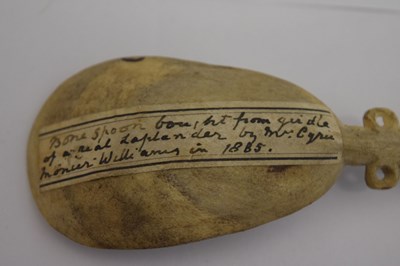 Bone spoon bought from girdle
of a real Laplander by Mr. Cyril
Monier-Williams in 1885.